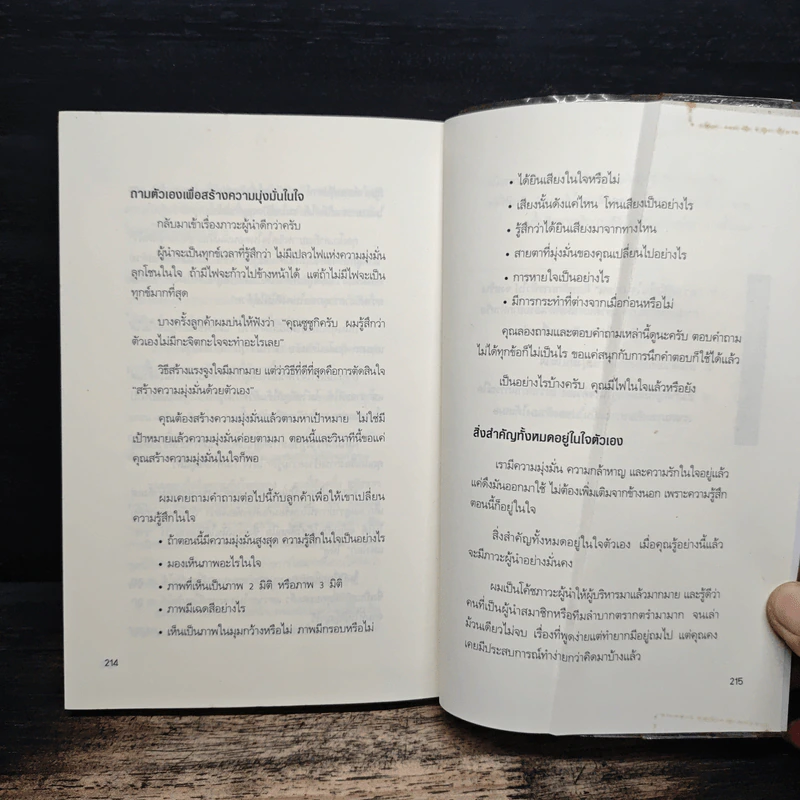 ถามตัวเองเพื่อสร้างความมุ่งมั่นในใจ
กลับมาเข้าเรื่องภาวะผู้นำดีกว่าครับ
ผู้นำจะเป็นทุกข์เวลาที่รู้สึกว่า ไม่มีเปลวไฟแห่งความมุ่งมั่น
ลุกโชนในใจ ถ้ามีไฟจะก้าวไปข้างหน้าได้ แต่ถ้าไม่มีไฟจะเป็น
ทุกข์มากที่สุด
บางครั้งลูกค้าผมบ่นให้ฟังว่า "คุณซูซูกิครับ ผมรู้สึกว่า
ตัวเองไม่มีกะจิตกะใจจะทำอะไรเลย"
วิธีสร้างแรงจูงใจมีมากมาย แต่ว่าวิธีที่ดีที่สุดคือการตัดสินใจ
"สร้างความมุ่งมั่นด้วยตัวเอง"
คุณต้องสร้างความมุ่งมั่นแล้วตามหาเป้าหมาย ไม่ใช่มี
เป้าหมายแล้วความมุ่งมั่นค่อยตามมา ตอนนี้และวินาทีนี้ขอแค่
คุณสร้างความมุ่งมั่นในใจก็พอ
ผมเคยถามคำถามต่อไปนี้กับลูกค้าเพื่อให้เขาเปลี่ยน
ความรู้สึกในใจ
• ถ้าตอนนี้มีความมุ่งมั่นสูงสุด ความรู้สึกในใจเป็นอย่างไร
• มองเห็นภาพอะไรในใจ
• ภาพที่เห็นเป็นภาพ 2 มิติ หรือภาพ 3 มิติ
• ภาพมีเฉดสีอย่างไร
• เห็นเป็นภาพในมุมกว้างหรือไม่ ภาพมีกรอบหรือไม่
214
• ได้ยินเสียงในใจหรือไม่
• เสียงนั้นดังแค่ไหน โทนเสียงเป็นอย่างไร
• รู้สึกว่าได้ยินเสียงมาจากทางไหน
• สายตาที่มุ่งมั่นของคุณเปลี่ยนไปอย่างไร
• การหายใจเป็นอย่างไร
• มีการกระทำที่ต่างจากเมื่อก่อนหรือไม่
คุณลองถามและตอบคำถามเหล่านี้ดูนะครับ ตอบคำถาม
ไม่ได้ทุกข้อก็ไม่เป็นไร ขอแค่สนุกกับการนึกคำตอบก็ใช้ได้แล้ว
เป็นอย่างไรบ้างครับ คุณมีไฟในใจแล้วหรือยัง
สิ่งสำคัญทั้งหมดอยู่ในใจตัวเอง
เรามีความมุ่งมั่น ความกล้าหาญ และความรักในใจอยู่แล้ว
แค่ดึงมันออกมาใช้ ไม่ต้องเพิ่มเติมจากข้างนอก เพราะความรู้สึก
ตอนนี้ก็อยู่ในใจ
สิ่งสำคัญทั้งหมดอยู่ในใจตัวเอง เมื่อคุณรู้อย่างนี้แล้ว
จะมีภาวะผู้นำอย่างมั่นคง
ผมเป็นโค้ชภาวะผู้นำให้ผู้บริหารมาแล้วมากมาย และรู้ดีว่า
คนที่เป็นผู้นำสมาชิกหรือทีมลำบากตรากตรำมามาก จนเล่า
ม้วนเดียวไม่จบ เรื่องที่พูดง่ายแต่ทำยากมีอยู่ถมไป แต่คุณคง
เคยมีประสบการณ์ทำง่ายกว่าคิดมาบ้างแล้ว
215